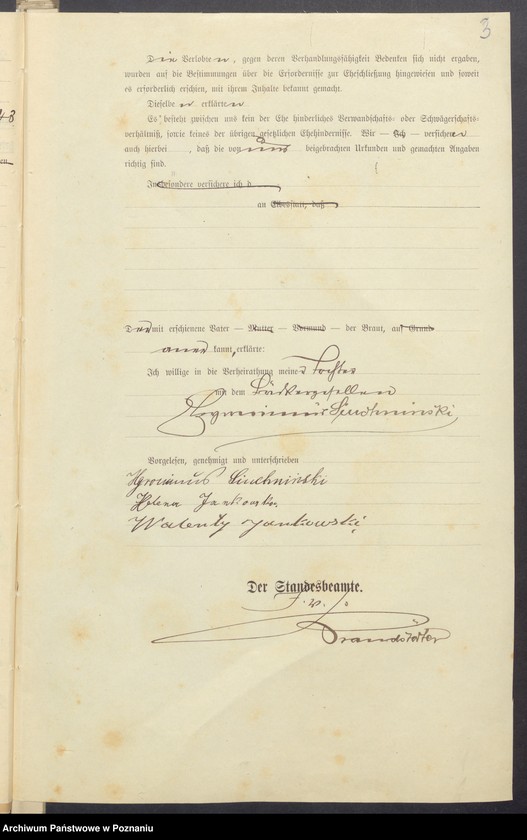 3
Die Verlobten, gegen deren Verhandlungsfähigkeit Bedenken sich nicht ergaben,
wurden auf die Bestimmungen über die Erfordernisse zur Eheschließung hingewiesen und soweit
es erforderlich erschien, mit ihrem Inhalte bekannt gemacht.
Dieselben erklärten
Es besteht zwischen uns kein der Ehe hinderliches Verwandschafts- oder Schwägerschafts-
verhältniß, sowie keines der übrigen gesetzlichen Ehehindernisse. Wir — Ich — versichern
auch hierbei , daß die von uns beigebrachten Urkunden und gemachten Angaben
richtig sind.
Insbesondere versichere ich d
an Eidesstatt, daß
Der mit erschienene Vater — Mutter — Vormund — der Braut, auf Grund
kannt, erklärte:
Ich willige in die Verheirathung meiner Tochter
mit dem Bäckergesellen
Vorgelesen, genehmigt und unterschrieben
Helena Jankowska
Walenty Jankowski
Der Standesbeamte.
Brandstätter
Archiwum Państwowe w Poznaniu